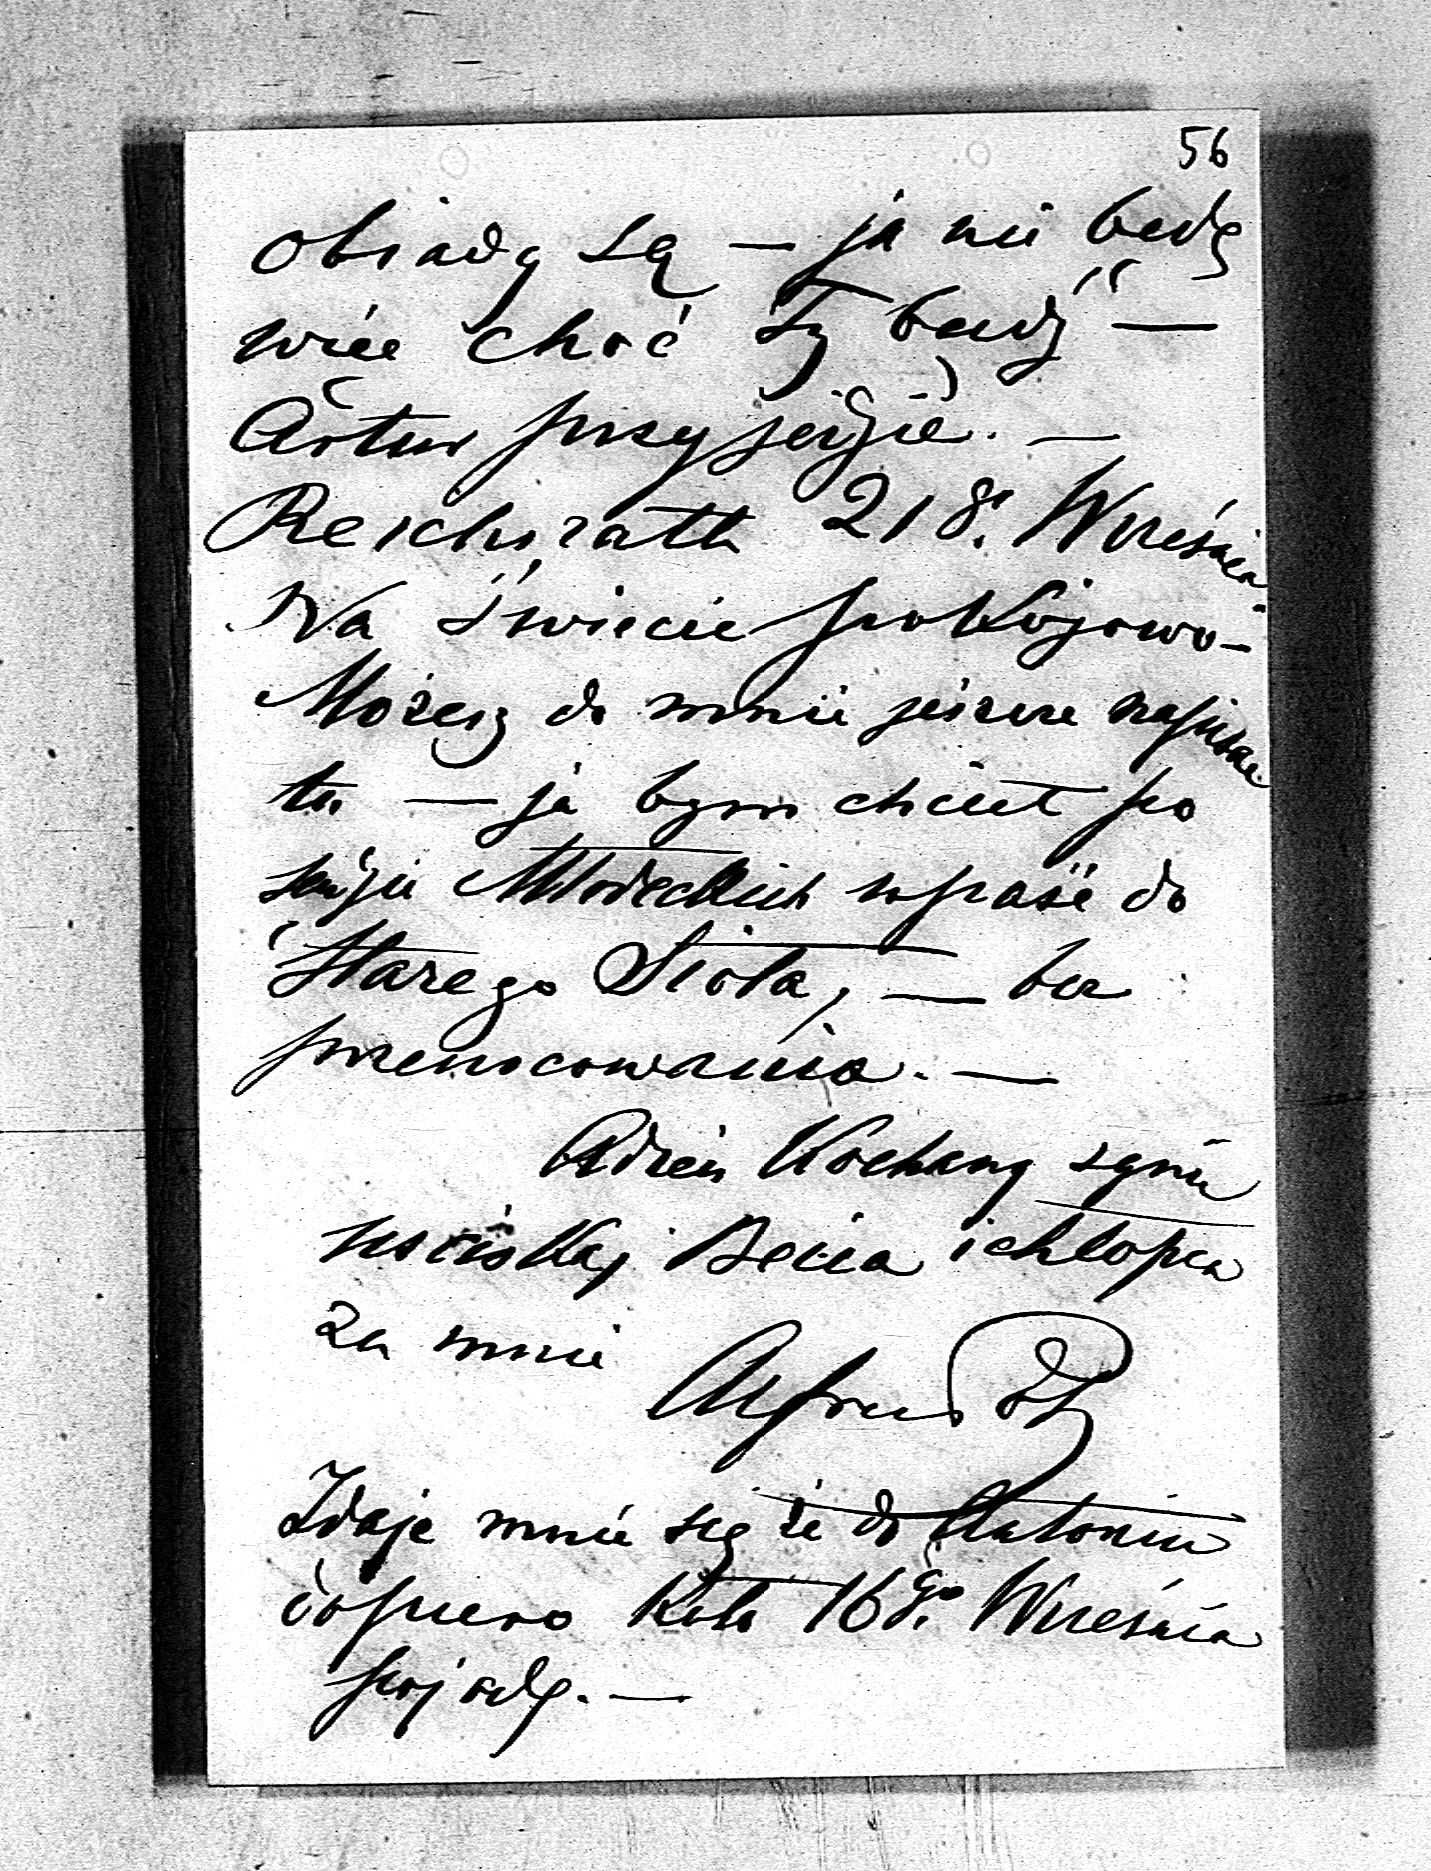 56
obiady są — ja nie będę
więc choć Ty bądź —
Artur przyjedzie. —
Reichsrath 21 8. Września
Na świecie pokojowo —
Możesz do mnie jeszcze napisać
tu — ja bym chciał po
sesji Młodeckich wprasić do
Starego Sioła, — bez
przenocowania. —
Adzieu Kochany synu
uściskaj Becia i chłopca
za mnie
Alfred
Zdaje mnie się że do Antonin
dopiero koło 16go. Września
pojadę. —